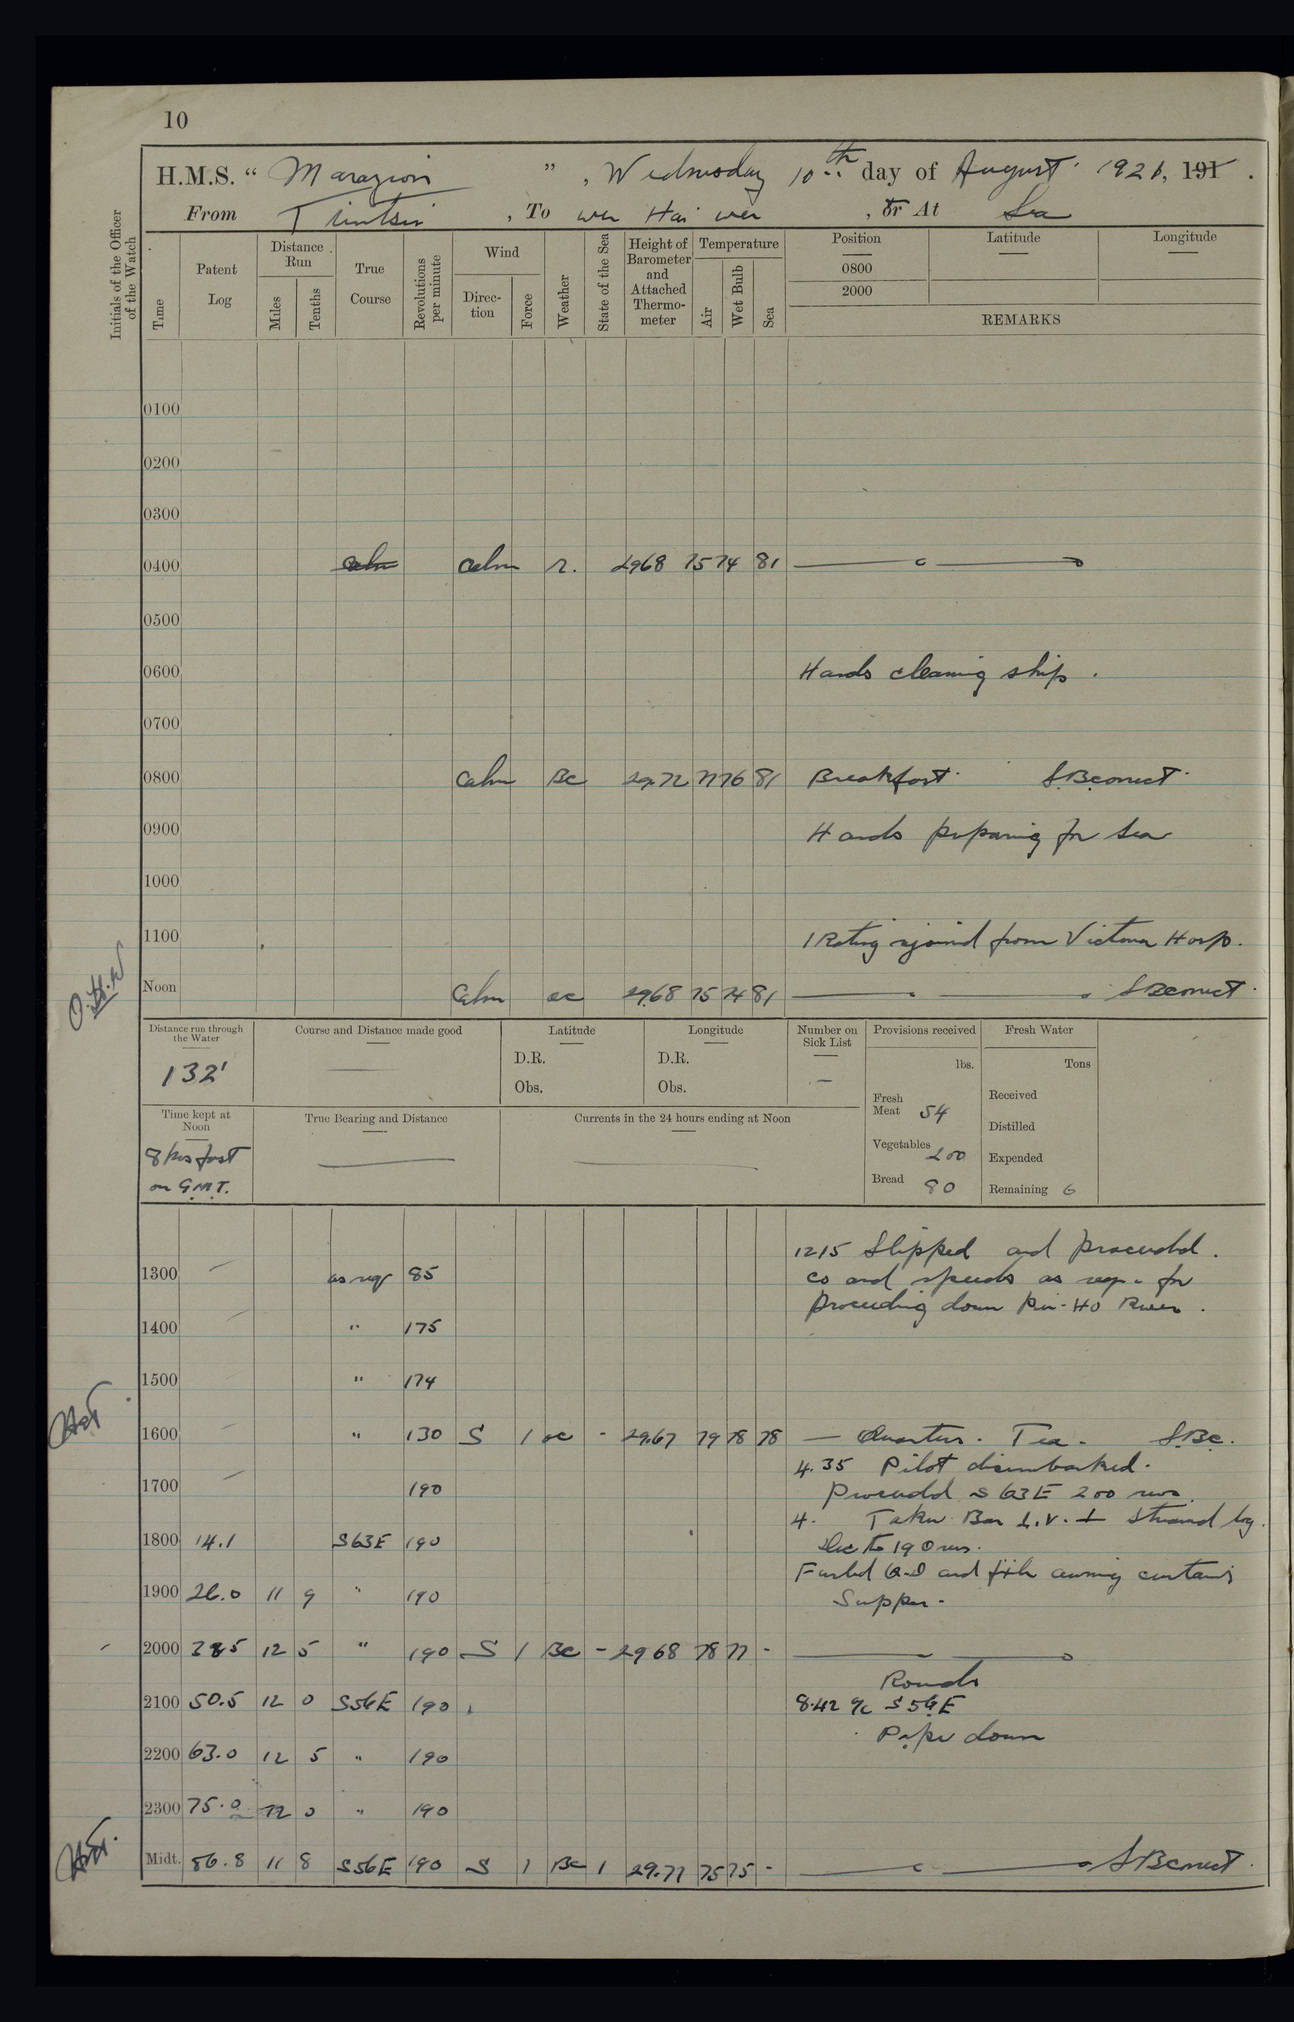 10
H.M.S. “ Marazion ”, Wednesday 10th day of August 1921, 191.
From Tientsin, To Wei Hai Wei, or At Sea
Initials of the Officer of the Watch
Time
Patent Log
Distance Run
Miles
Tenths
True Course
Revolutions per minute
Wind
Direction
Force
Weather
State of the Sea
Height of Barometer and Attached Thermometer
Temperature
Air
Wet Bulb
Sea
Position
0800
2000
Latitude
Longitude
REMARKS
0100
0200
0300
0400 calm calm r. 2968 75 74 81
0500
0600 Hands cleaning ship.
0700
0800 calm Bc 29.72 77 76 81 Breakfast. S.B.
0900 Hands preparing for sea
1000
1100 1 Rating rejoined from Victoria Hosp.
O.H.W
Noon Calm oc 2968 75 74 81
Distance run through the Water
132'
Course and Distance made good
Latitude
D.R.
Obs.
Longitude
D.R.
Obs.
Number on Sick List
—
Provisions received
lbs.
Fresh Meat 54
Vegetables 200
Bread 90
Fresh Water
Tons
Received
Distilled
Expended
Remaining 6
Time kept at Noon
8 hrs fast
on G.M.T.
True Bearing and Distance
Currents in the 24 hours ending at Noon
1215 Slipped and proceeded.
1300 as req 85 Co and speeds as req. for
proceeding down Pei-Ho River.
1400 " 175
1500 " 174
1600 " 130 S 1 oc - 29.67 79 78 78 — Quarters. Tea. S.Bc.
4.35 Pilot disembarked.
1700 190 Proceeded S 63E 200 revs.
4. Taku Bar L.V. ⊥ Streamed log.
1800 14.1 S63E 190 Dec to 190 revs.
Furled Q-D and fxle awning curtains
1900 26.0 11 9 " 190 Supper.
2000 385 12 5 " 190 S 1 Bc - 2968 78 77 -
Rounds
2100 50.5 12 0 S56E 190 8.42 a/c S 56E
Pipe down
2200 63.0 12 5 " 190
2300 75.0 12 0 " 190
Midt. 86.8 11 8 S56E 190 S 1 Bc 1 29.77 75 75 -